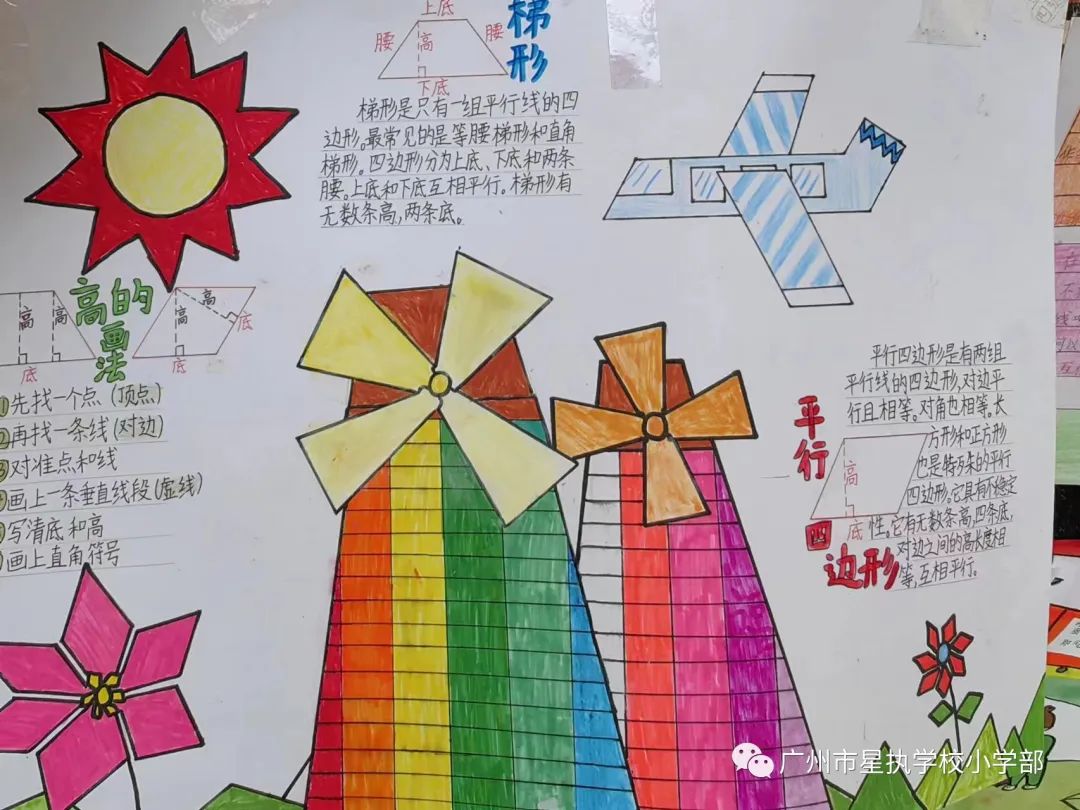 上底
腰
高
腰
下底
梯形
梯形是只有一组平行线的四
边形。最常见的是等腰梯形和直角
梯形。四边形分为上底、下底和两条
腰。上底和下底互相平行。梯形有
无数条高,两条底。
高的画法
高
高
底
高
高
底
底
①先找一个点(顶点)
②再找一条线(对边)
③对准点和线
④画上一条垂直线段(虚线)
⑤写清底和高
⑥画上直角符号
平行四边形
平行四边形是有两组
平行线的四边形,对边平
行且相等。对角也相等。长
方形和正方形
也是特殊的平行
四边形。它具有不稳定
性。它有无数条高,四条底,
对边之间的高长度相
等,互相平行。
高
底
广州市星执学校小学部